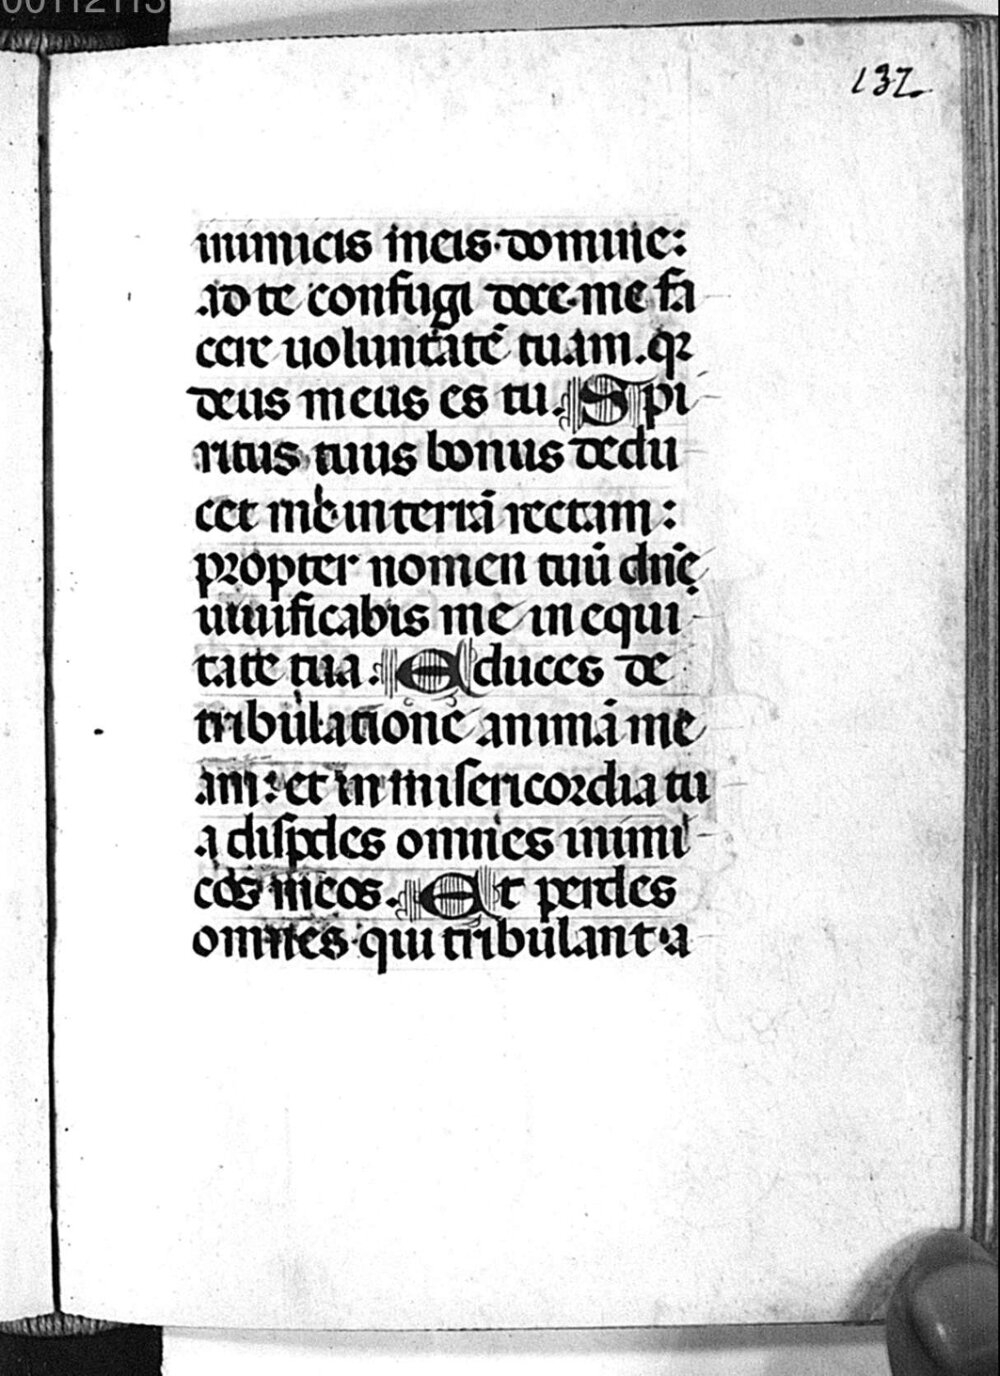 00112113
132
inimicis meis domine:
ad te confugi doce me fa
cere uoluntatē tuam. qꝛ
deus meus es tu. Spi
ritus tuus bonus dedu
cet me in terrā rectam:
propter nomen tuū dn̄e
uiuificabis me in equi
tate tua. Educes de
tribulatione animā me
am: et in misericordia tu
a disꝑdes omnes inimi
cos meos. Et perdes
omnes qui tribulant a